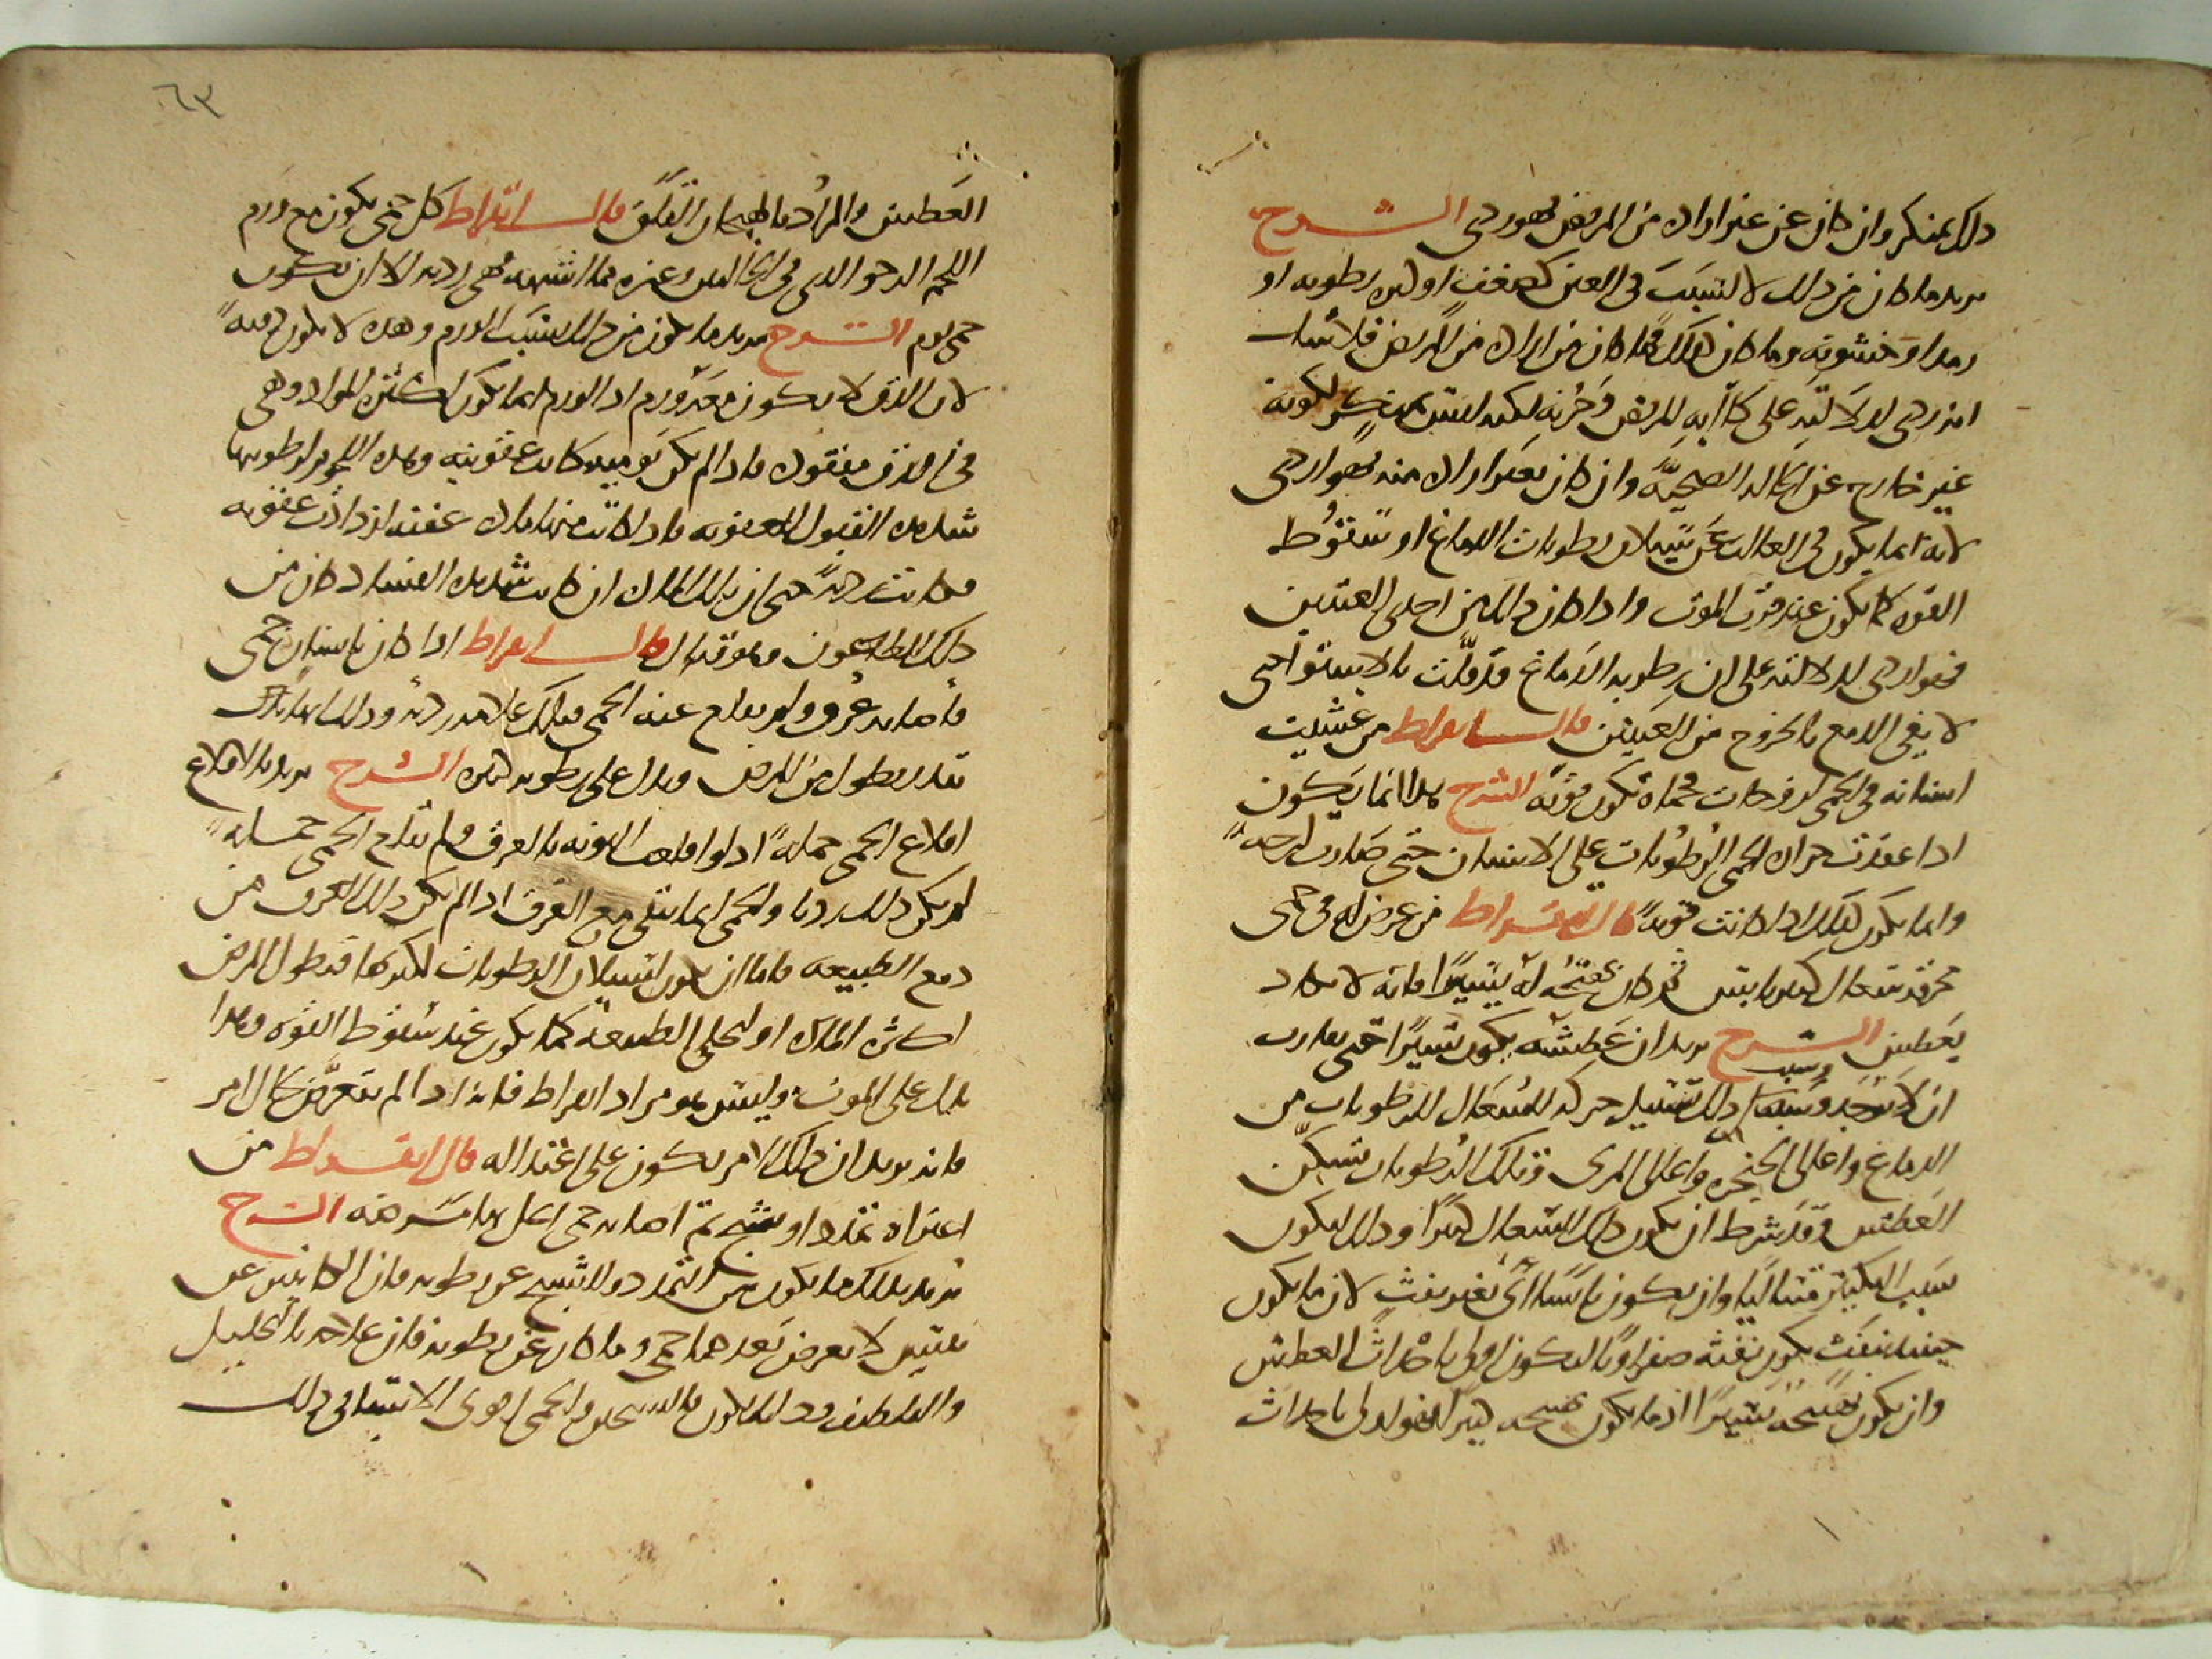 ذلك بمنكر وان كان عن غير ارادة من المريض فهو ردى الشرح
يريد ما كان من ذلك لا لسبب فى العين كضعف او لين رطوبة او
رمد او خشونة وما كان كذلك فما كان من ارادة من المريض فلا شك
انه ردى لدلالته على كآبة المريض وحزنه لكنه ليس بمنكر لكونه
غير خارج عن الحالة الصحية وان كان بغير ارادة منه فهو اردى
لانه انما يكون فى الغالب عن سيلان رطوبات الدماغ او سقوط
القوة كما يكون عند قرب الموت واذا كان ذلك من احدى العينين
فهو اردى لدلالته على ان رطوبة الدماغ قد قلت بالاستواء حتى
لا يفى الدمع بالخروج من العينين قال ابقراط من غشيت
اسنانه فى الحمى لزوجات فحماه تكون قوية الشرح هذا انما يكون
اذا عقدت حرارة الحمى الرطوبات على الاسنان حتى صارت لزجة
وانما يكون كذلك اذا كانت قوية قال ابقراط من عرض له فى حمى
محرقة سعال كثير يابس ثم كان تهيجه له يسيرا فانه لا يكاد
يعطش الشرح يريد ان عطشه يكون يسيرا حتى يقارب
ان لا يوجد وسبب ذلك تسييل حركة السعال للرطوبات من
الدماغ واعالى الحنجرة واعالى المرى وتلك الرطوبات تسكن
العطش وقد شرط ان يكون ذلك السعال كثيرا وذلك ليكون
سبب التسكين متتاليا وان يكون يابسا اى بغير نفث لان ما يكون
حينئذ بنفث يكون نفثه صفراويا ليكون اولى باحداث العطش
وان يكون تهيجه يسيرا اذ ما يكون تهيجه كثيرا فهو اولى باحداث
٦٣
العطش والمراد بالهيجان القلق قال ابقراط كل حمى يكون مع ورم
اللحم الرخو الذى فى الحالبين وغيره مما اشبهه فهى ردية الا ان يكون
حمى يوم الشرح يريد ما يكون من ذلك بسبب الورم وهذه لا يكون دقية
لان الدق لا يكون معه ورم اذ الورم انما يكون لكثرة المواد وهى
فى الدق مفقودة فاذا لم يكن يومية كانت عفونية وهذه اللحوم لرطوبتها
شديدة القبول للعفونة فاذا كانت منها مادة عفنة ازدادت عفونة
فكانت ردية حتى ان تلك المادة ان كانت شديدة الفساد كان من
ذلك الطاعون وهو قتال قال ابقراط اذا كان بانسان حمى
فأصابه عرق ولم يقلع عنه الحمى فتلك علامة ردية وذلك انها تدل
تنذر بطول من المرض ويدل على رطوبة كثيرة الشرح يريد بالاقلاع
اقلاع الحمى جملة اذ لو اقلعت النوبة بالعرق ولم تقلع الحمى جملة
لم يكن ذلك رديا والحمى انما تبقى مع العرق اذا لم يكن ذلك العرق من
دفع الطبيعة فاما ان يكون لسيلان الرطوبات لكثرتها فيطول المرض
لكثرة المادة او لتخلى الطبيعة كما يكون عند سقوط القوة وهذا
يدل على الموت وليس هو مراد ابقراط فانه اذا لم يتعرض لحال امر
فانه يريد ان ذلك الامر يكون على اعتداله قال ابقراط من
اعتراه تمدد او تشنج ثم اصابه حمى انحل بها مرضه الشرح
يريد بذلك ما يكون من التمدد والتشنج عن رطوبة فان الكائنين عن
يبس لا يعرض بعدهما حمى وما كان عن رطوبة فان علاجه بالتحليل
والتلطيف وذلك يكون بالتسخين والحمى اقوى الاشياء فى ذلك